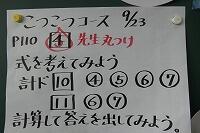 こつこつコース 9/23
P110 4 先生丸つけ
式を考えてみよう
計ド 10 ④ ⑤ ⑥ ⑦
11 ⑥ ⑦
計算して答えを出してみよう。